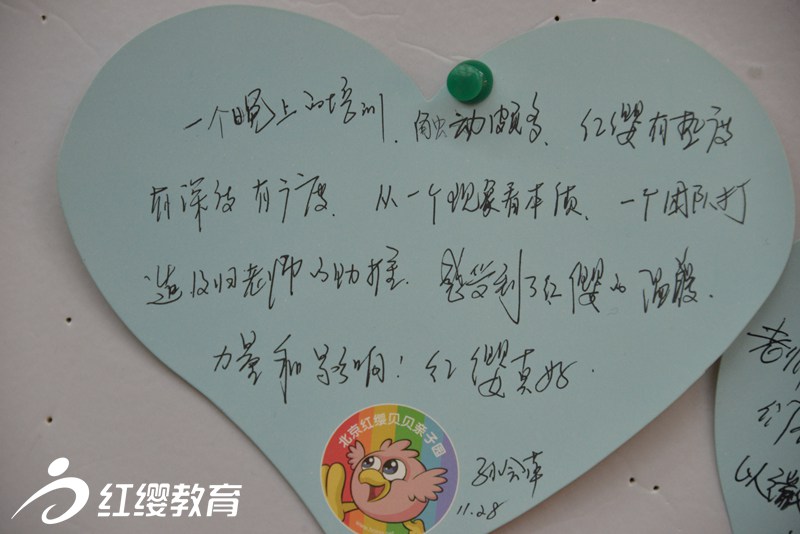 一个晚上的培训、触动颇多、红缨有热度
有深度有广度、从一个现象看本质、一个团队打
造及归老师的助推、感受到了红缨的温暖、
力量和影响！红缨真好.
11.28
北京红缨贝贝亲子园
红缨教育
老师
以